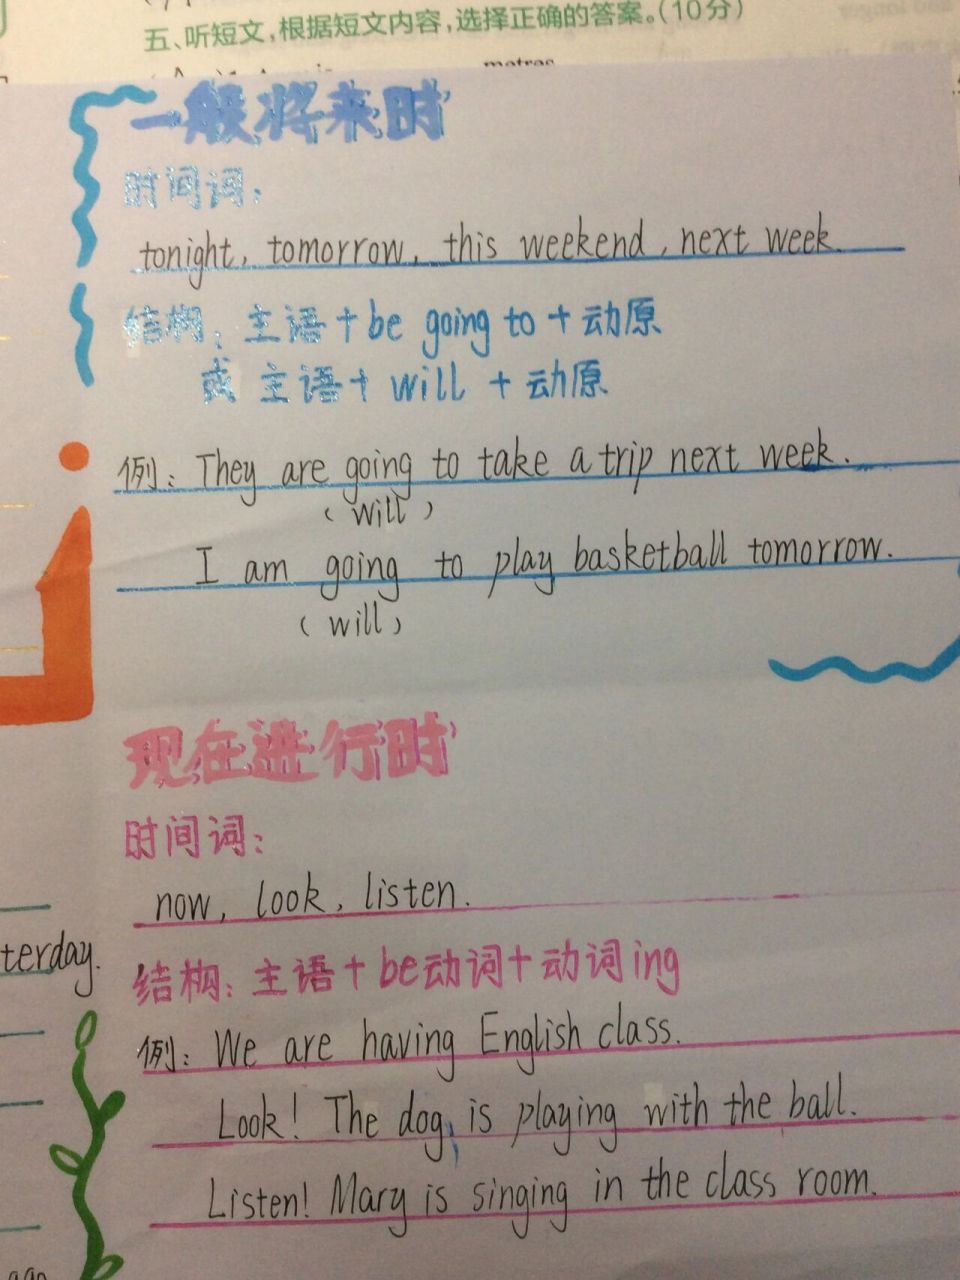 五、听短文，根据短文内容，选择正确的答案。(10分)
metres
一般将来时
时间词：
tonight, tomorrow, this weekend, next week.
结构：主语+be going to+动原
或 主语+ will +动原
例：They are going to take a trip next week.
(will)
I am going to play basketball tomorrow.
(will)
现在进行时
时间词：
now, look, listen.
结构：主语+be动词+动词ing
terday.
例：We are having English class.
Look! The dog is playing with the ball.
Listen! Mary is singing in the class room.
ago